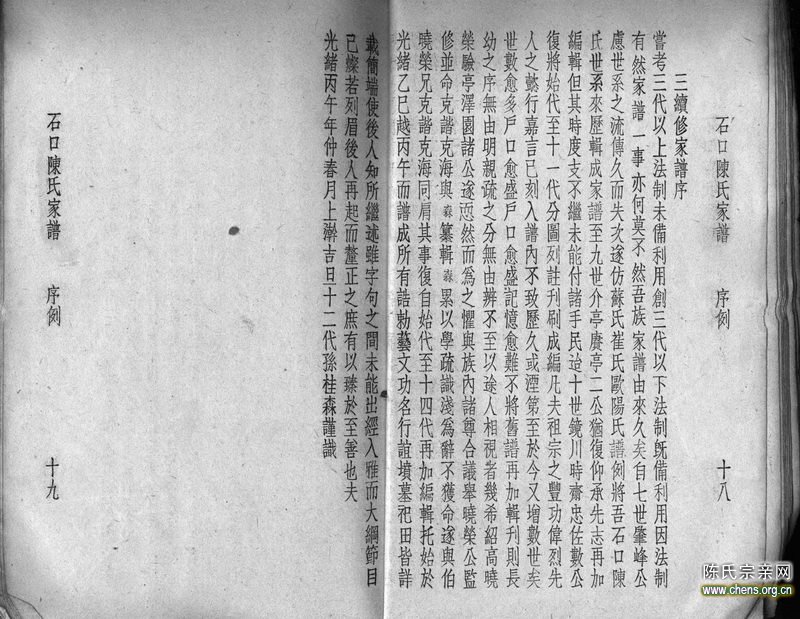 石口陳氏家譜　序例　十八
三續修家譜序
嘗考三代以上法制未備利用創三代以下法制既備利用因法制
有然家譜一事亦何莫不然吾族家譜由來久矣自七世肇峰公
慮世系之流傳久而失次遂仿蘇氏崔氏歐陽氏譜例將吾石口陳
氏世系來歷輯成家譜至九世介亭賡亭二公猶復仰承先志再加
編輯但其時度支不繼未能付諸手民迨十世鏡川時齋忠佐數公
復將始代至十一代分圖列註刊刷成編凡夫祖宗之豐功偉烈先
人之懿行嘉言已刻入譜內不致歷久或湮第至於今又增數世矣
世數愈多戶口愈盛戶口愈盛記憶愈難不將舊譜再加輯刊則長
幼之序無由明親疏之分無由辨不至以途人相視者幾希紹高曉
榮驗亭澤園諸公遂惄然而為之懼與族內諸尊合議舉曉榮公監
修並命克諧克海與森纂輯森累以學疏識淺為辭不獲命遂與伯
曉榮兄克諧克海同肩其事復自始代至十四代再加編輯托始於
光緒乙巳越丙午而譜成所有誥勅藝文功名行誼墳墓祀田皆詳
載簡端使後人知所繼述雖字句之間未能出經入雅而大綱節目
已燦若列眉後人再起而釐正之庶有以臻於至善也夫
光緒丙午年仲春月上澣吉旦十二代孫桂森謹識
石口陳氏家譜　序例　十九
陈氏宗亲网
www.chens.org.cn